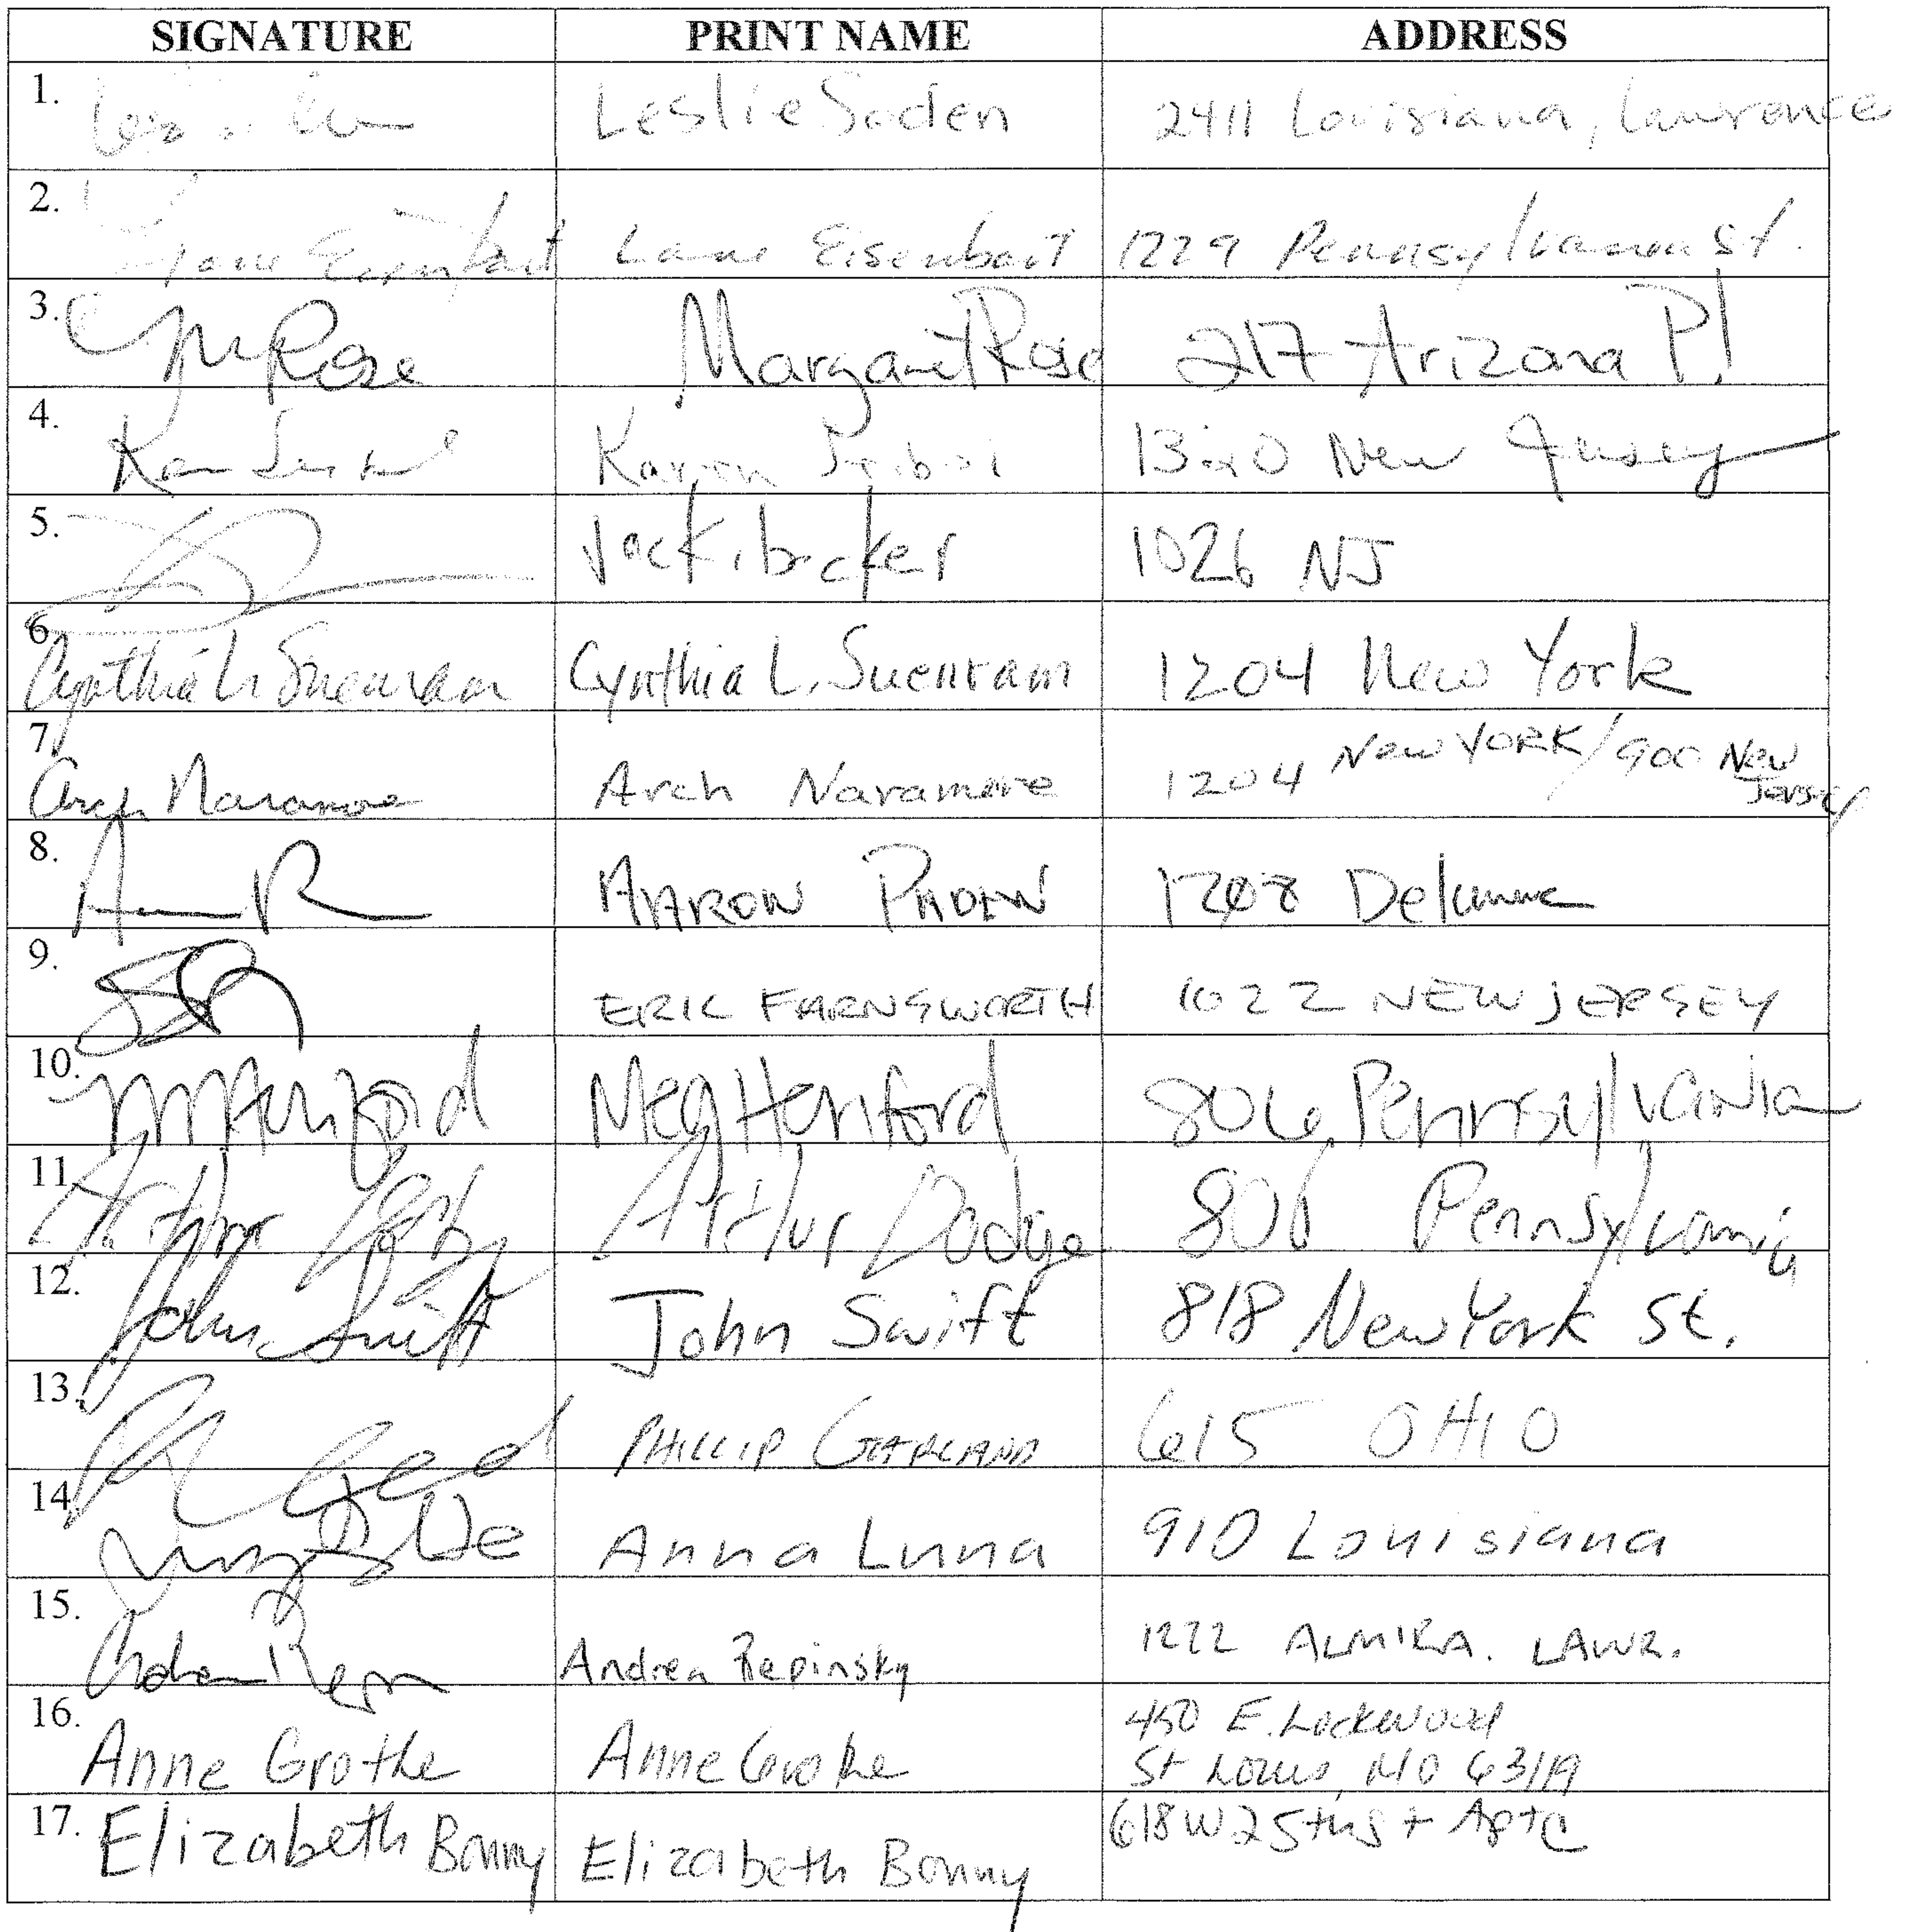 SIGNATURE PRINT NAME ADDRESS
1. Leslie Soden 2411 Louisiana, Lawrence
2. Lane Eisenbart Lane Eisenbart 1229 Pennsylvania St.
3. M Rose Margaret Rose 217 Arizona Pl
4. Karen 1320 New Jersey
5. Jacki becker 1026 NJ
6. Cynthia L. Suenram Cynthia L. Suenram 1204 New York
7. Arch Naramore Arch Naramore 1204 New YORK/900 New Jersey
8. AARON PADEN 1208 Delaware
9. ERIC FARNSWORTH 1022 NEW JERSEY
10. Meg Henford 806 Pennsylvania
11. Arthur Dodge Arthur Dodge 806 Pennsylvania
12. John Swift John Swift 818 New York St.
13. PHILLIP GARLAND 615 OHIO
14. Anna Luna 910 Louisiana
15. Andrea Repinsky 1222 ALMIRA. LAWR.
16. Anne Grothe Anne Grothe 450 E. Lockwood
St Louis, MO 63119
17. Elizabeth Bonny Elizabeth Bonny 618 W 25th St Apt C